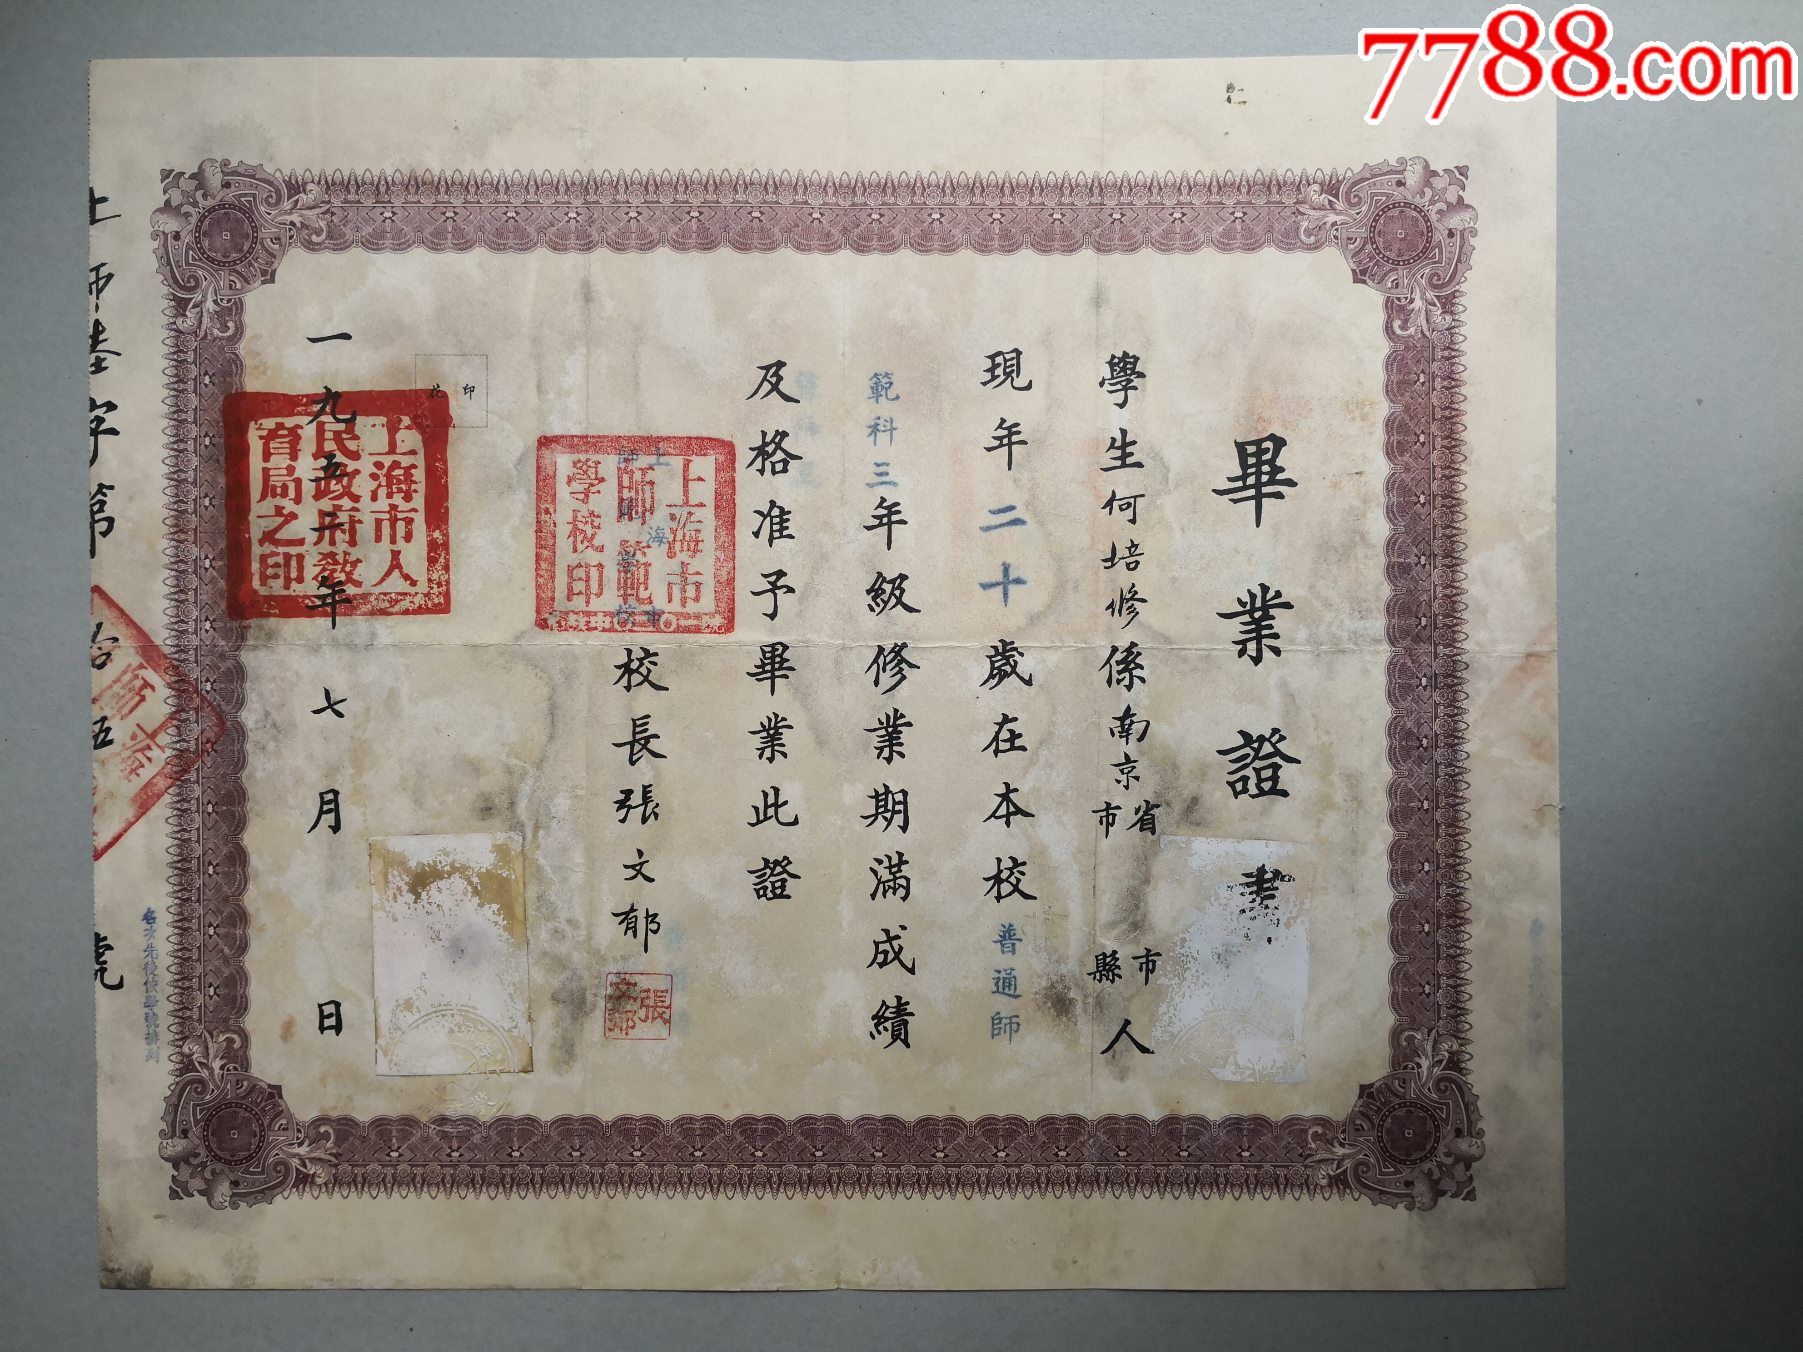 7788.com
畢業證書
學生何培修係南京省市 市縣人
現年二十歲在本校普通師
範科三年級修業期滿成績
及格准予畢業此證
上海市
師範學校
校長張文郁
張文郁
上海市師範學校印
印花
一九五二年七月 日
上海市人民政府教育局之印
上師 字第拾五號
名次先後依學號排列